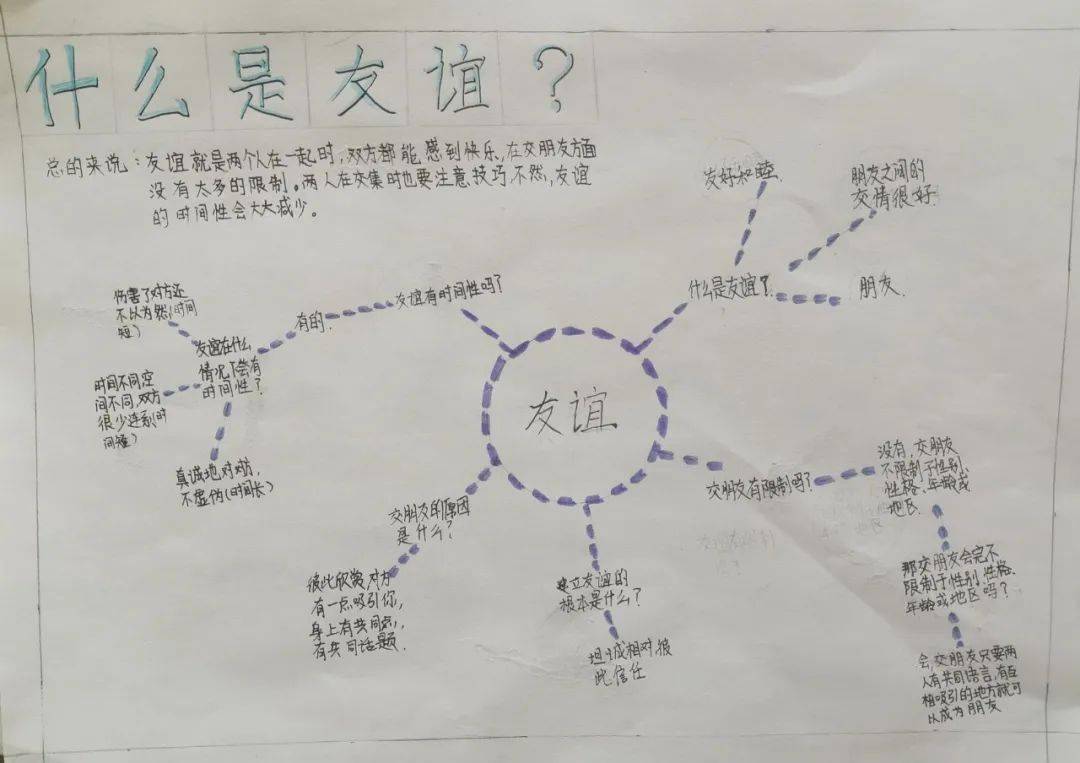 什么是友谊?
总的来说:友谊就是两个人在一起时,双方都能感到快乐,在交朋友方面
没有太多的限制。两人在交集时也要注意技巧,不然,友谊
的时间性会大大减少。
友好和睦
朋友之间的
交情很好.
什么是友谊?
朋友.
友谊有时间性吗?
有的.
友谊在什么
情况下会有
时间性?
伤害了对方还
不以为然(时间
短)
时间不同,空
间不同,双方
很少连系(时
间短)
真诚地对对方,
不虚伪(时间长)
友谊
交朋友有限制吗?
没有,交朋友
不限制于性别、
性格、年龄或
地区.
那交朋友会完不
限制于性别、性格、
年龄或地区吗?
会,交朋友只要两
人有共同语言,有互
相吸引的地方就可
以成为朋友
交朋友的原因
是什么?
彼此欣赏,对方
有一点吸引你,
身上有共同点,
有共同话题.
建立友谊的
根本是什么?
坦诚相对,彼
此信任